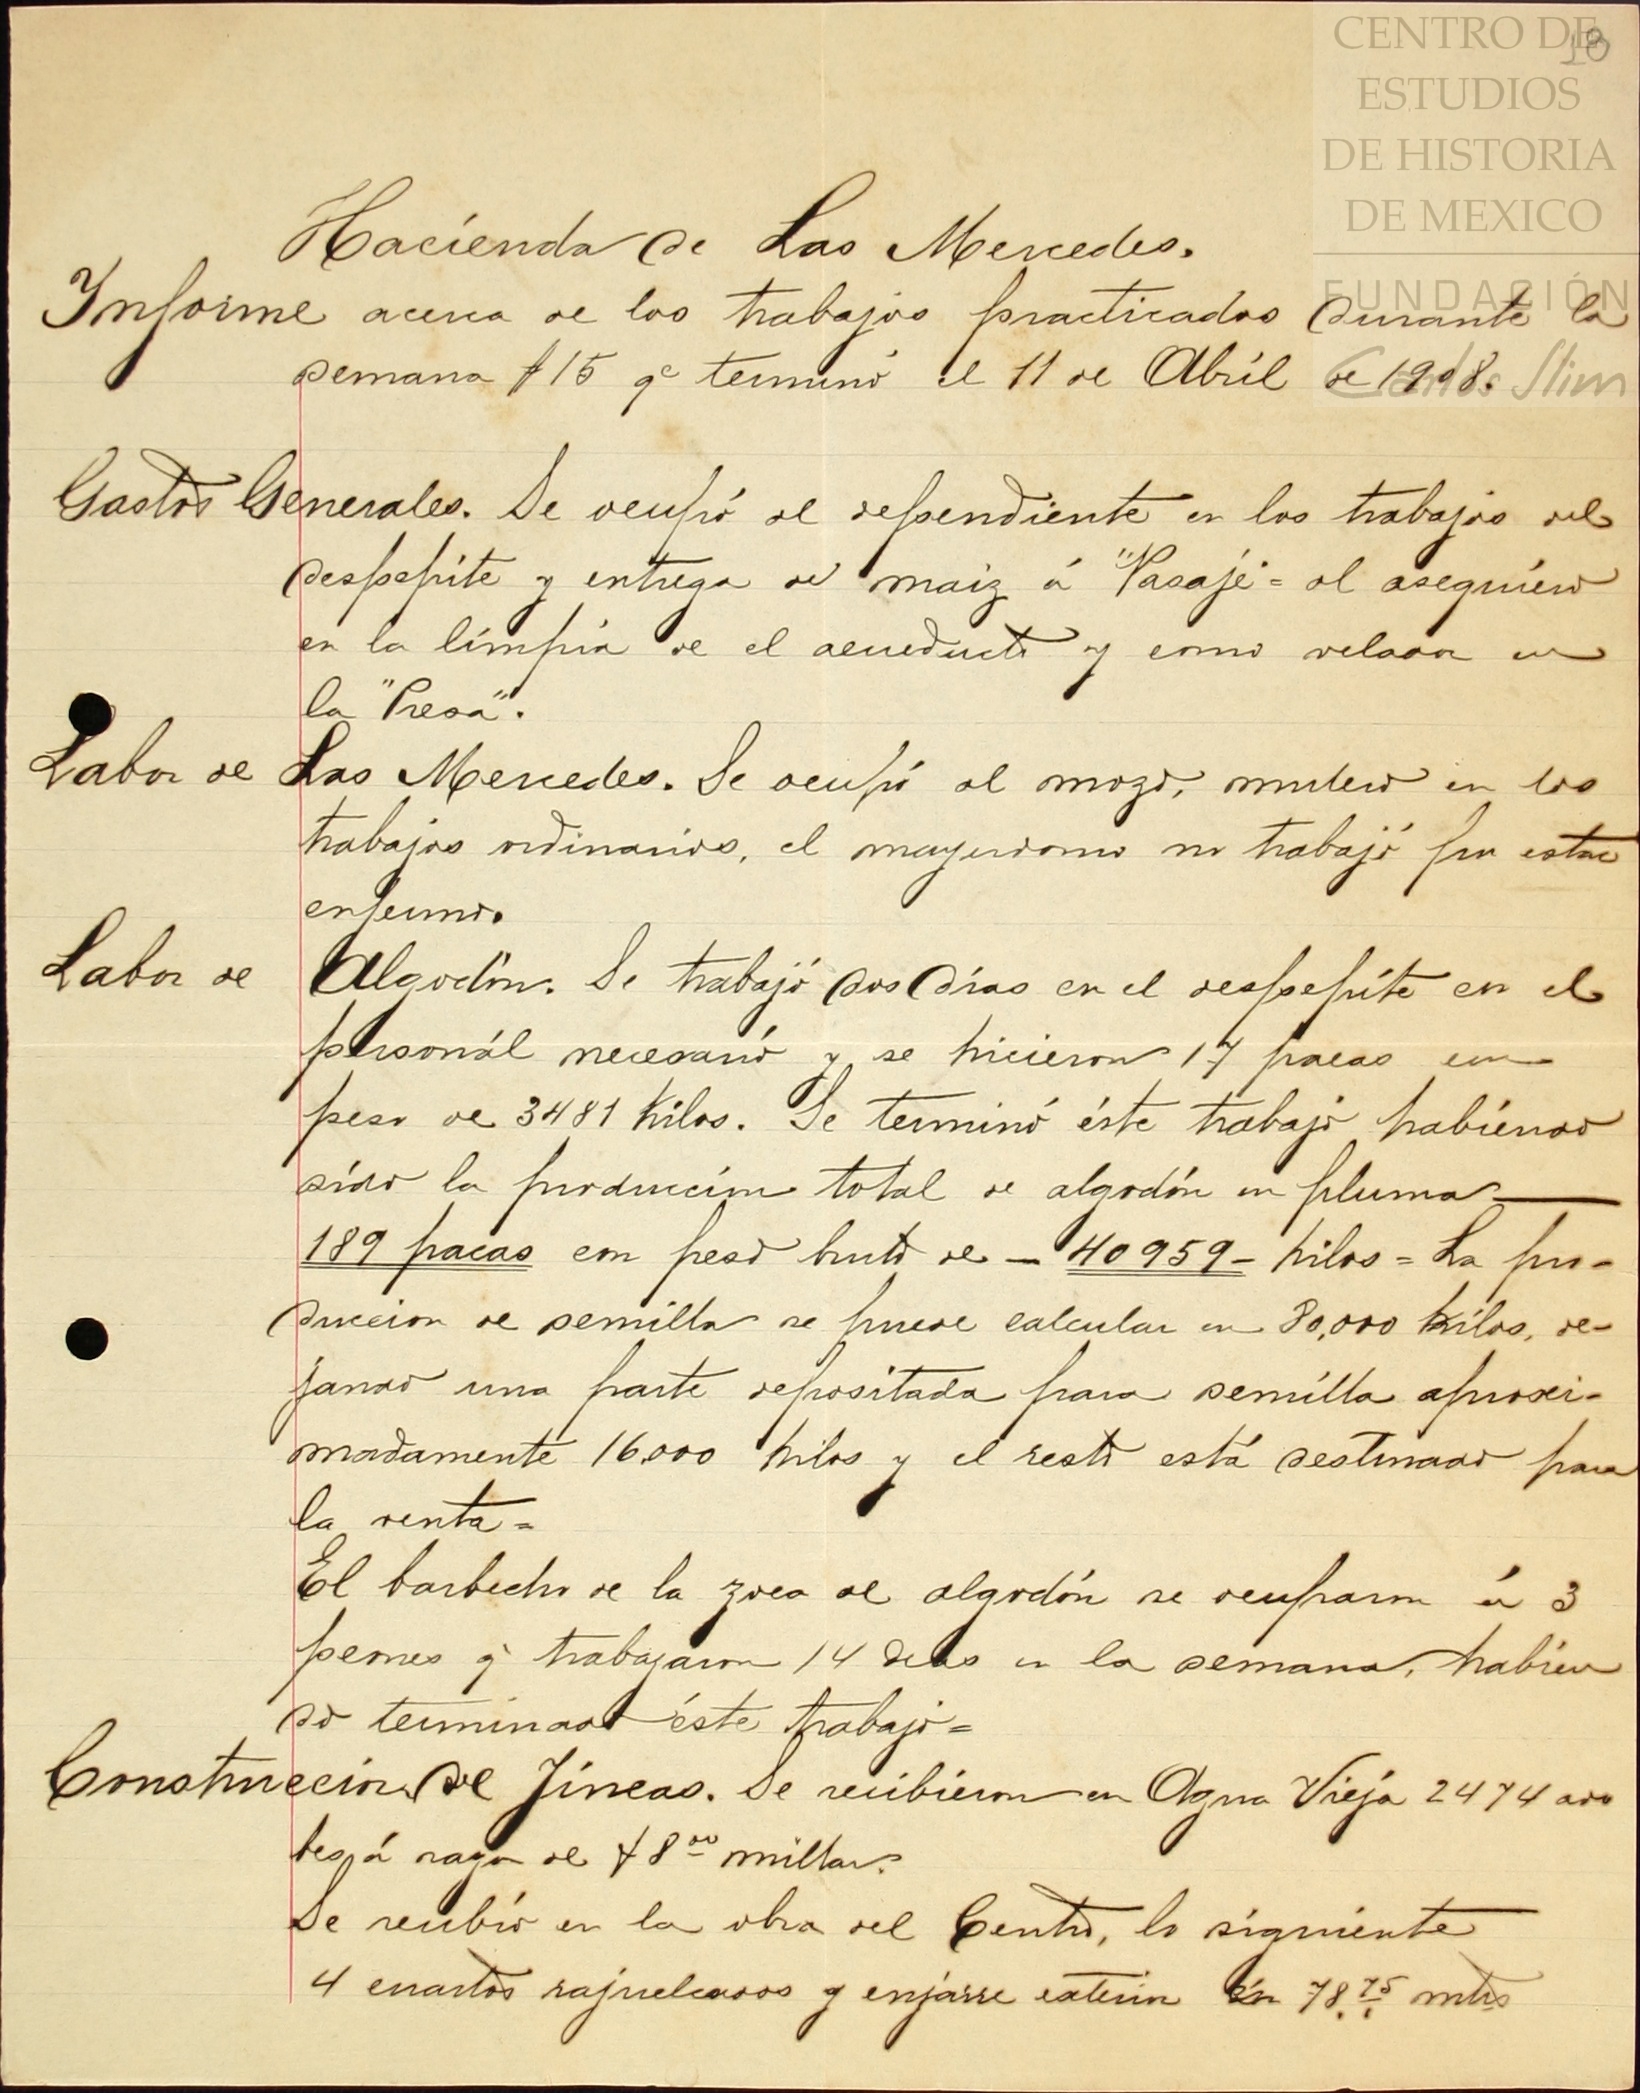 CENTRO DE
ESTUDIOS
DE HISTORIA
DE MEXICO
FUNDACIÓN
Carlos Slim
18
Hacienda de Las Mercedes.
Informe acerca de los trabajos practicados durante la
semana # 15 qe terminó el 11 de Abríl de 1908.
Gastos Generales. Se ocupó al dependiente en los trabajos del
despepite y entrega de maiz á "Pasaje" = al asequiero
en la limpia de el acueducto y como velador en
la "Presa".
Labor de Las Mercedes. Se ocupó al mozo, mulero en los
trabajos ordinarios, el mayordomo no trabajó por estar
enfermo.
Labor de Algodón. Se trabajó dos días en el despepite con el
personál necesario y se hicieron 17 pacas con
peso de 3481 Kilos. Se terminó éste trabajo habiendo
sido la producción total de algodón en pluma
189 pacas con peso bruto de — 40959 — kilos = La pro-
duccion de semilla se puede calcular en 80,000 Kilos, de-
jando una parte depositada para semilla aproxi-
madamente 16.000 kilos y el resto está destinado para
la venta =
El barbecho de la zoca de algodón se ocuparon á 3
peones q' trabajaron 14 dias en la semana, habien
do terminado éste trabajo =
Construccion de fincas. Se recibieron en Agua Vieja 2474 ado
bes á razon de $ 8.00 millar.
Se recibió en la obra del Centro, lo siguiente
4 cuartos rajueleados y enjarre exterior en 78.75 mtrs